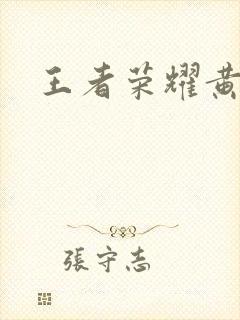 王者荣耀黄
張守志